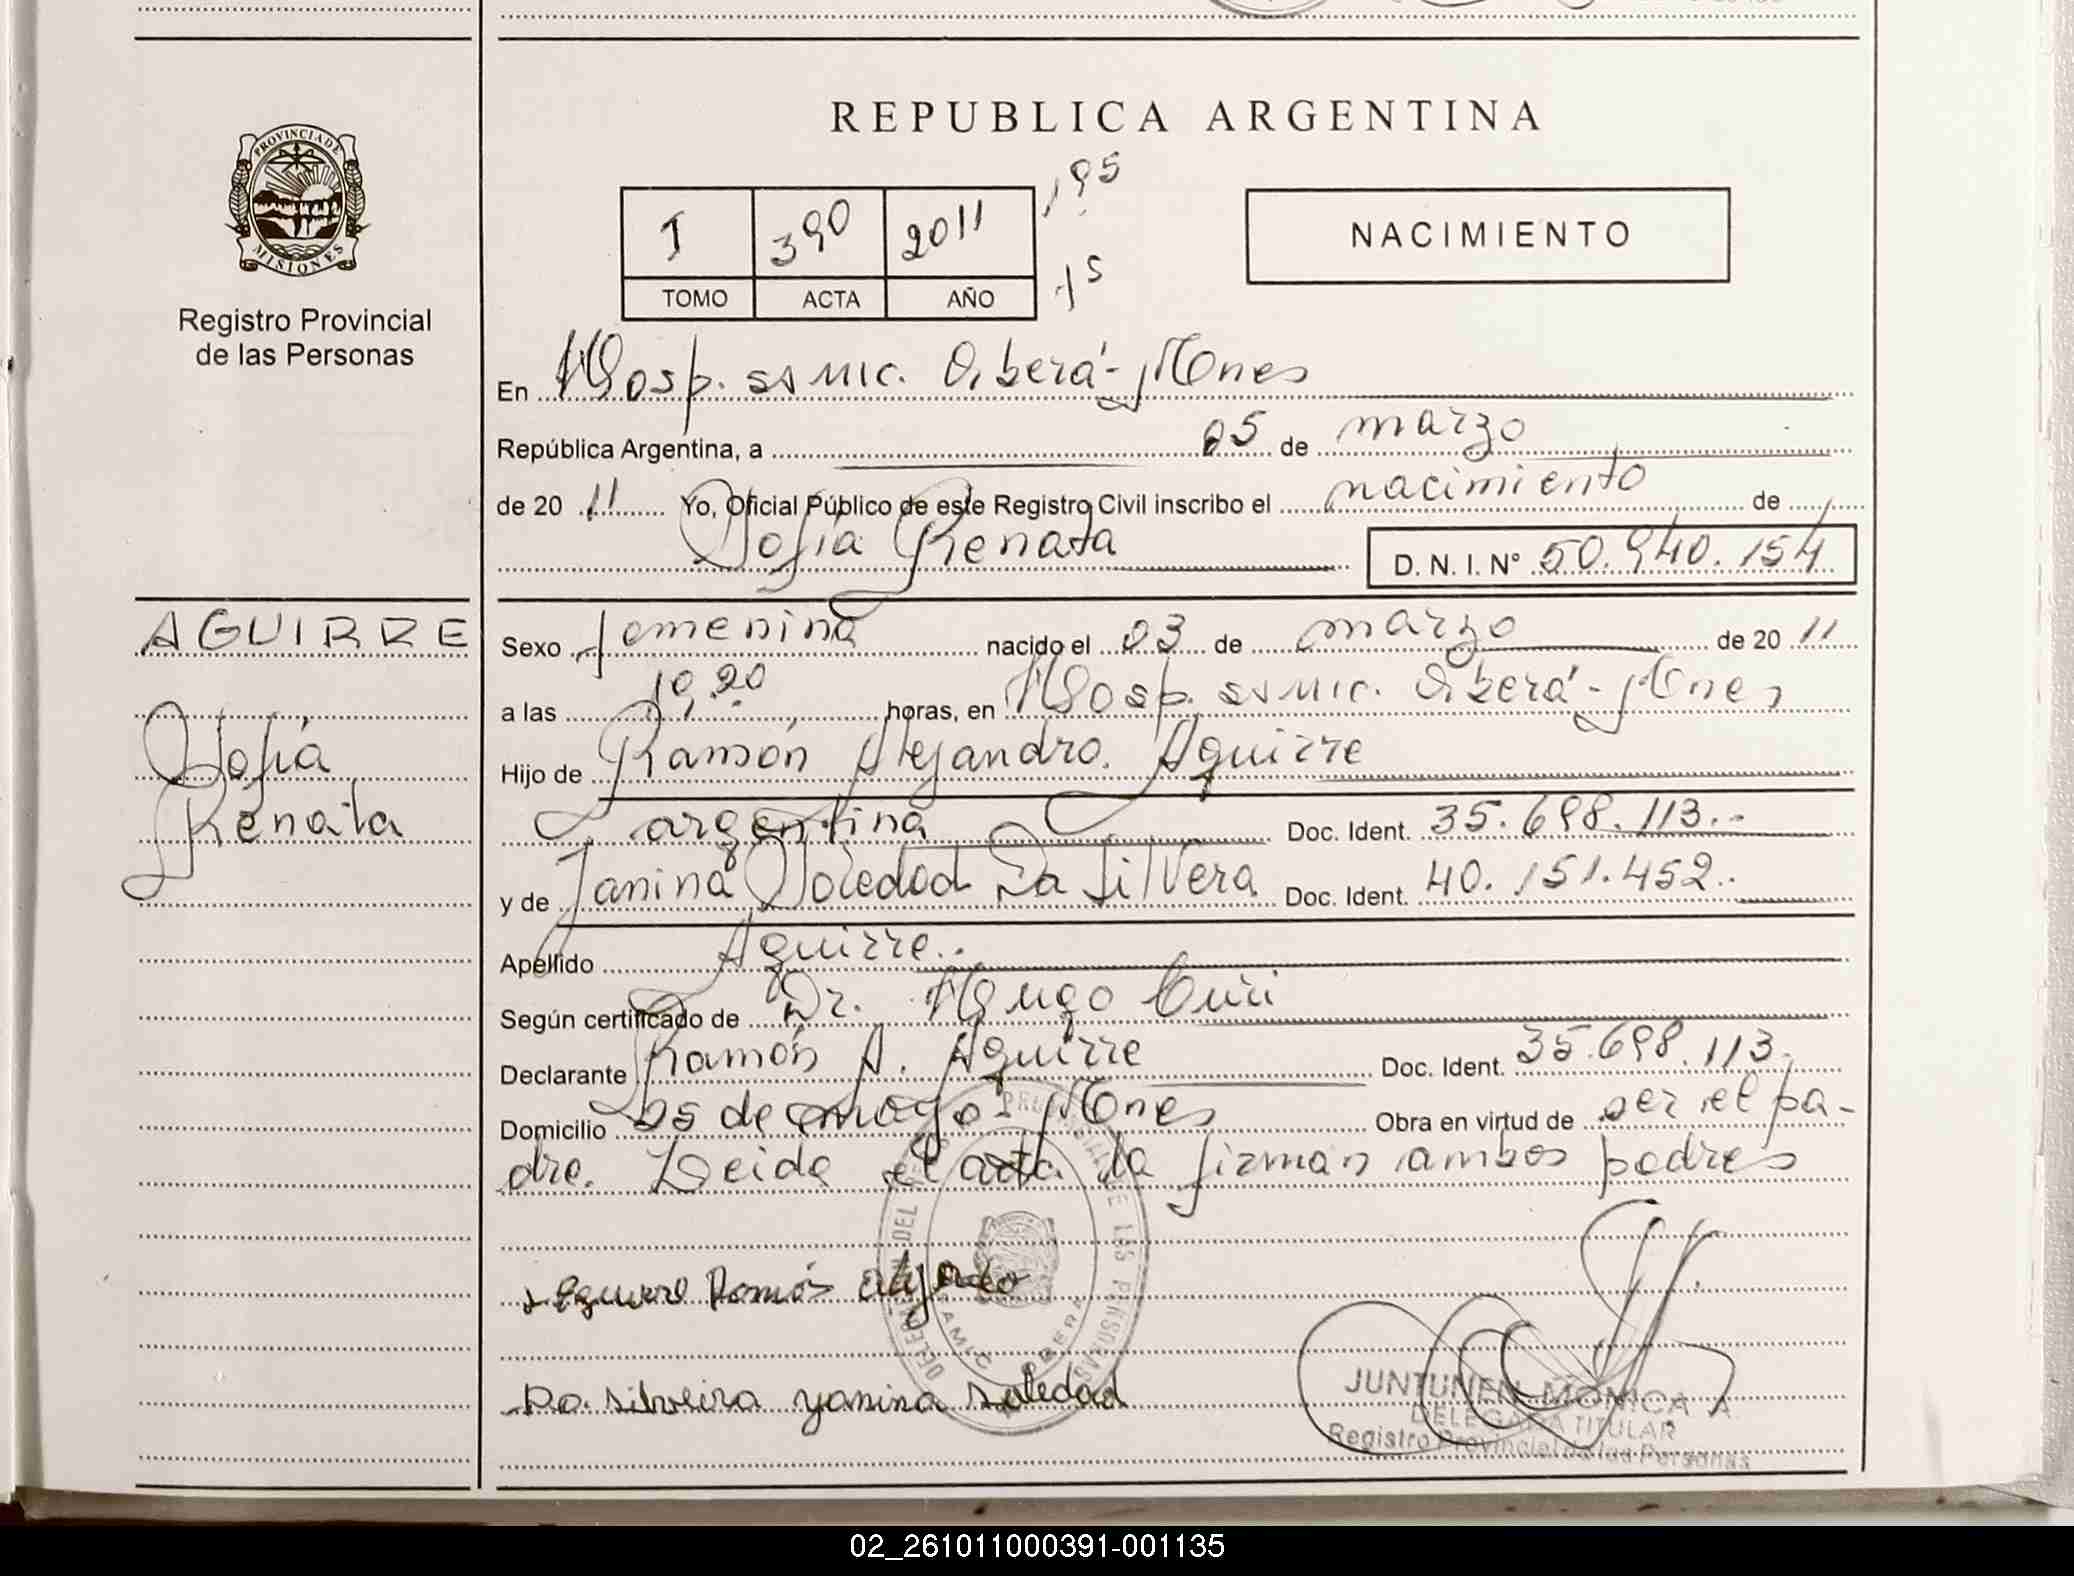 REPUBLICA ARGENTINA
PROVINCIA DE
MISIONES
Registro Provincial
de las Personas
I 390 2011
TOMO ACTA AÑO
195
15
NACIMIENTO
En Hosp. ssmic. Oberá-Mones
República Argentina, a 05 de marzo
de 20 11 Yo, Oficial Público de este Registro Civil inscribo el nacimiento de
Sofía Renata D. N. I. Nº 50.940.154
AGUIRRE
Sofía
Renata
Sexo femenina nacido el 03 de marzo de 20 11
a las 19,20 horas, en Hosp. ssmic. Oberá-Mones
Hijo de Ramón Alejandro Aguirre
argentina Doc. Ident. 35.698.113.-
y de Janina Soledad Da Silvera Doc. Ident. 40.151.452.
Apellido Aguirre.
Según certificado de Dr. Hugo
Declarante Ramón A. Aguirre Doc. Ident. 35.698.113.
Domicilio 25 de mayo - Mones Obra en virtud de ser el pa-
dre. Leida el acta la firman ambos padres
Ramón
Da. Silveira yanina Soledad
JUNTUNEN MONICA A.
DELEGADA TITULAR
Registro Provincial de las Personas
02_261011000391-001135